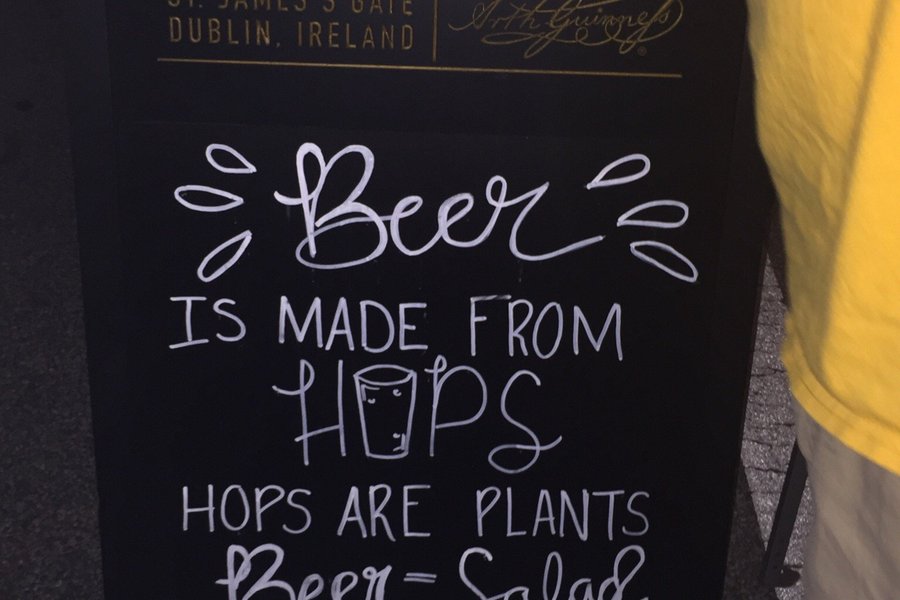 ST. JAMES'S GATE
DUBLIN, IRELAND
Arth Guinness
®
Beer
IS MADE FROM
HOPS
HOPS ARE PLANTS
Beer = Salad